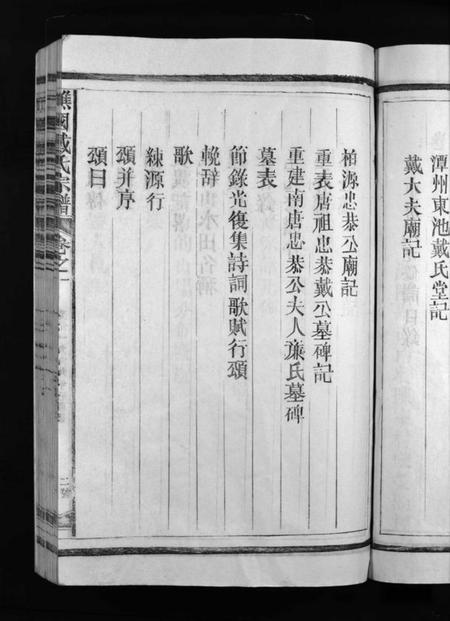 潭州東池戴氏堂記
戴大夫廟記
柏源忠恭公廟記
重表唐祖忠恭戴公墓碑記
重建南唐忠恭公夫人廉氏墓碑
墓表
節錄光復集詩詞歌賦行頌
輓辞
歌
練源行
頌并序
頌曰
譙國戴氏宗譜